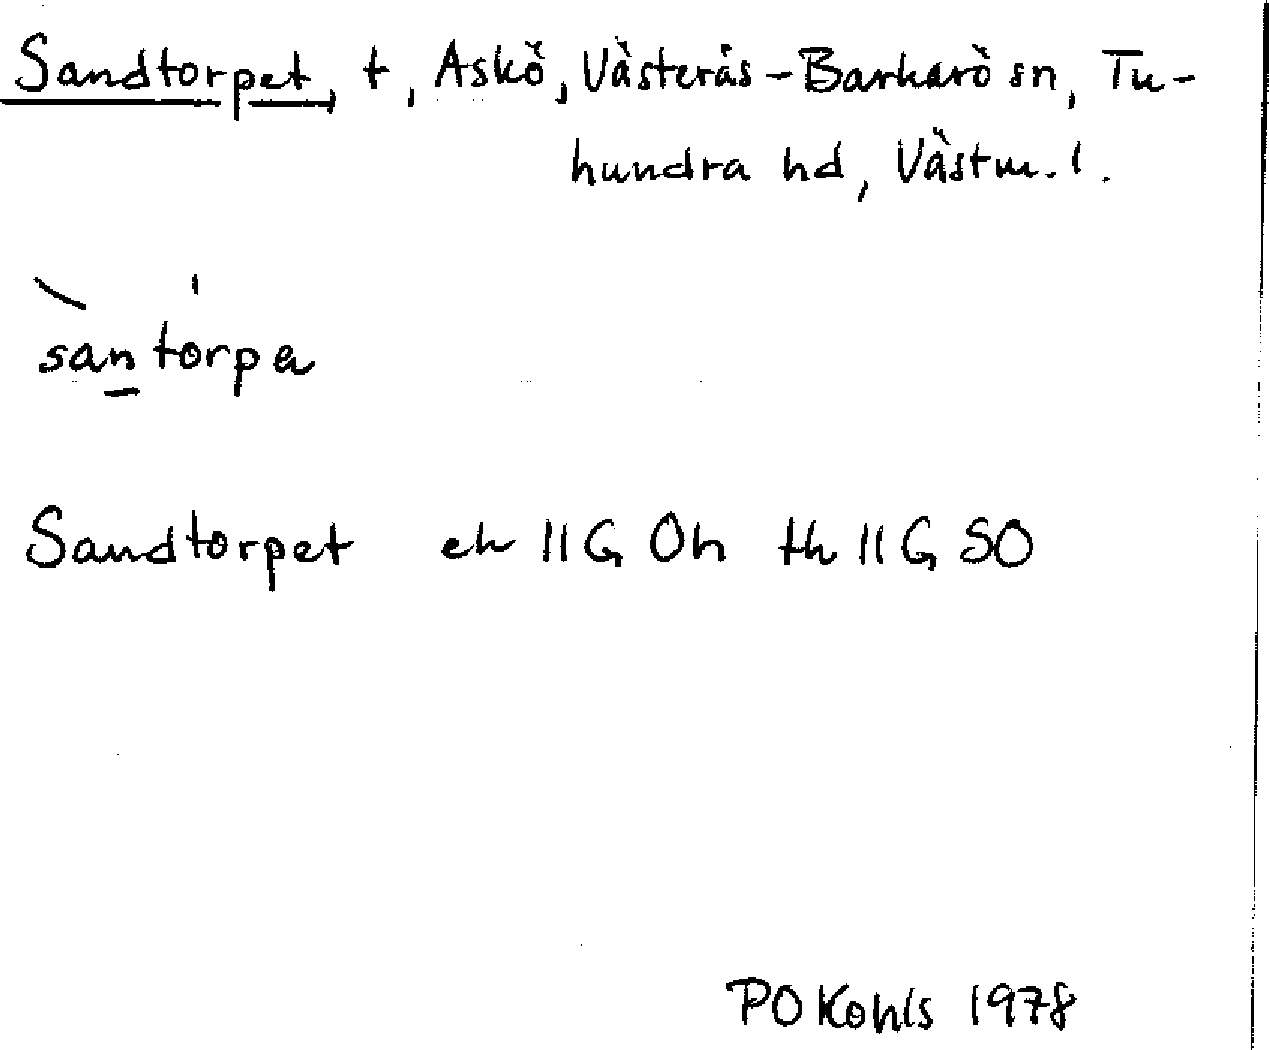 Sandtorpet, t, Askö, Västerås-Barkarö sn, Tu-
hundra hd, Västm. l.
santorpa
Sandtorpet ek 11G 0h tk 11G SO
PO Kohls 1978